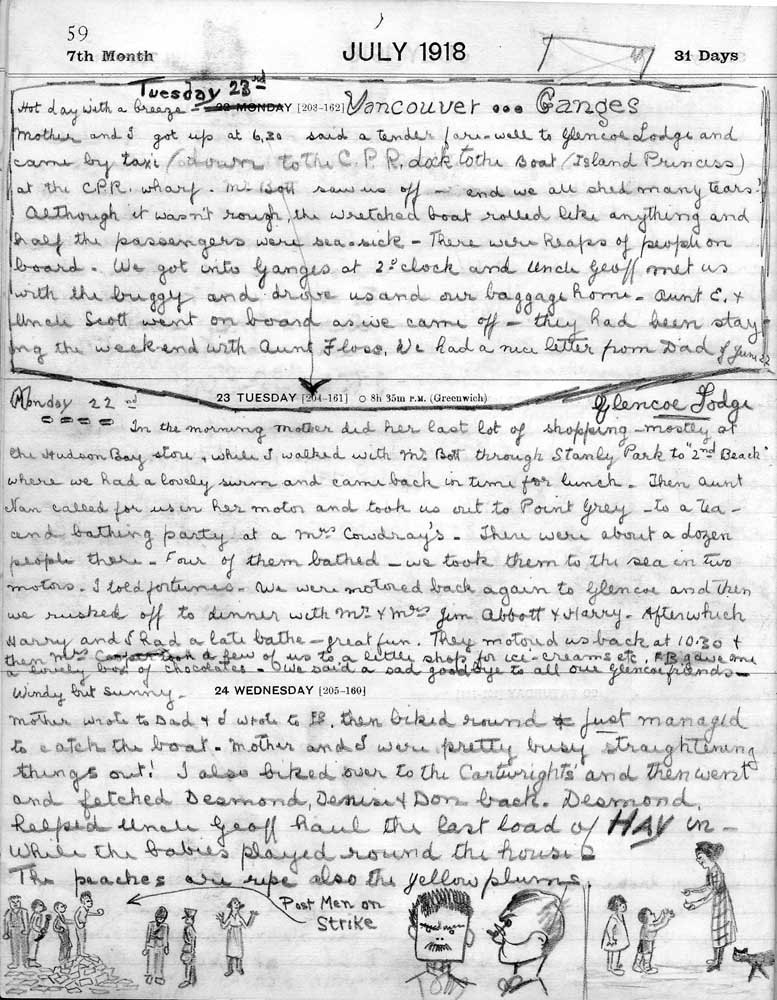 59
7th Month
JULY 1918
31 Days
Tuesday 23rd
Hot day with a breeze - 22 MONDAY [203-162] Vancouver ... Ganges
Mother and I got up at 6.30 said a tender fare-well to Glencoe Lodge and
came by taxi down to the C.P.R. dock to the Boat (Island Princess)
at the C.P.R. wharf. Mr Bott saw us off - and we all shed many tears!
Although it wasn't rough, the wretched boat rolled like anything and
half the passengers were sea-sick - There were heaps of people on
board. We got into Ganges at 2 o'clock and Uncle Geoff met us
with the buggy and drove us and our baggage home - Aunt E. &
Uncle Scott went on board as we came off - they had been stay-
ing the week-end with Aunt Floss. We had a nice letter from Dad of June 22
Monday 22nd
23 TUESDAY [204-161] O 8h 35m P.M. (Greenwich)
Glencoe Lodge
In the morning Mother did her last lot of shopping - mostly at
the Hudson Bay store, while I walked with Mr Bott through Stanly Park to "2nd Beach"
where we had a lovely swim and came back in time for lunch. Then Aunt
Nan called for us in her motor and took us out to Point Grey - to a Tea-
and bathing party at a Mrs Cowdray's. There were about a dozen
people there. Four of them bathed - we took them to the sea in two
motors. I told fortunes. We were motored back again to Glencoe and then
we rushed off to dinner with Mr & Mrs Jim Abbott & Harry. After which
Harry and I had a late bathe - great fun. They motored us back at 10.30 &
then Mrs took a few of us to a little shop for ice-creams etc. gave me
a lovely box of chocolates. We said a sad goodbye to all our Glencoe friends -
Windy but sunny -
24 WEDNESDAY [205-160]
Mother wrote to Dad & I wrote to then biked round & just managed
to catch the boat. Mother and I were pretty busy straightening
things out! I also biked over to the Cartwrights and then went
and fetched Desmond, Denise & Don back. Desmond
helped Uncle Geoff haul the last load of HAY in -
While the babies played round the house
The peaches are ripe also the yellow plums
Post Men on
Strike